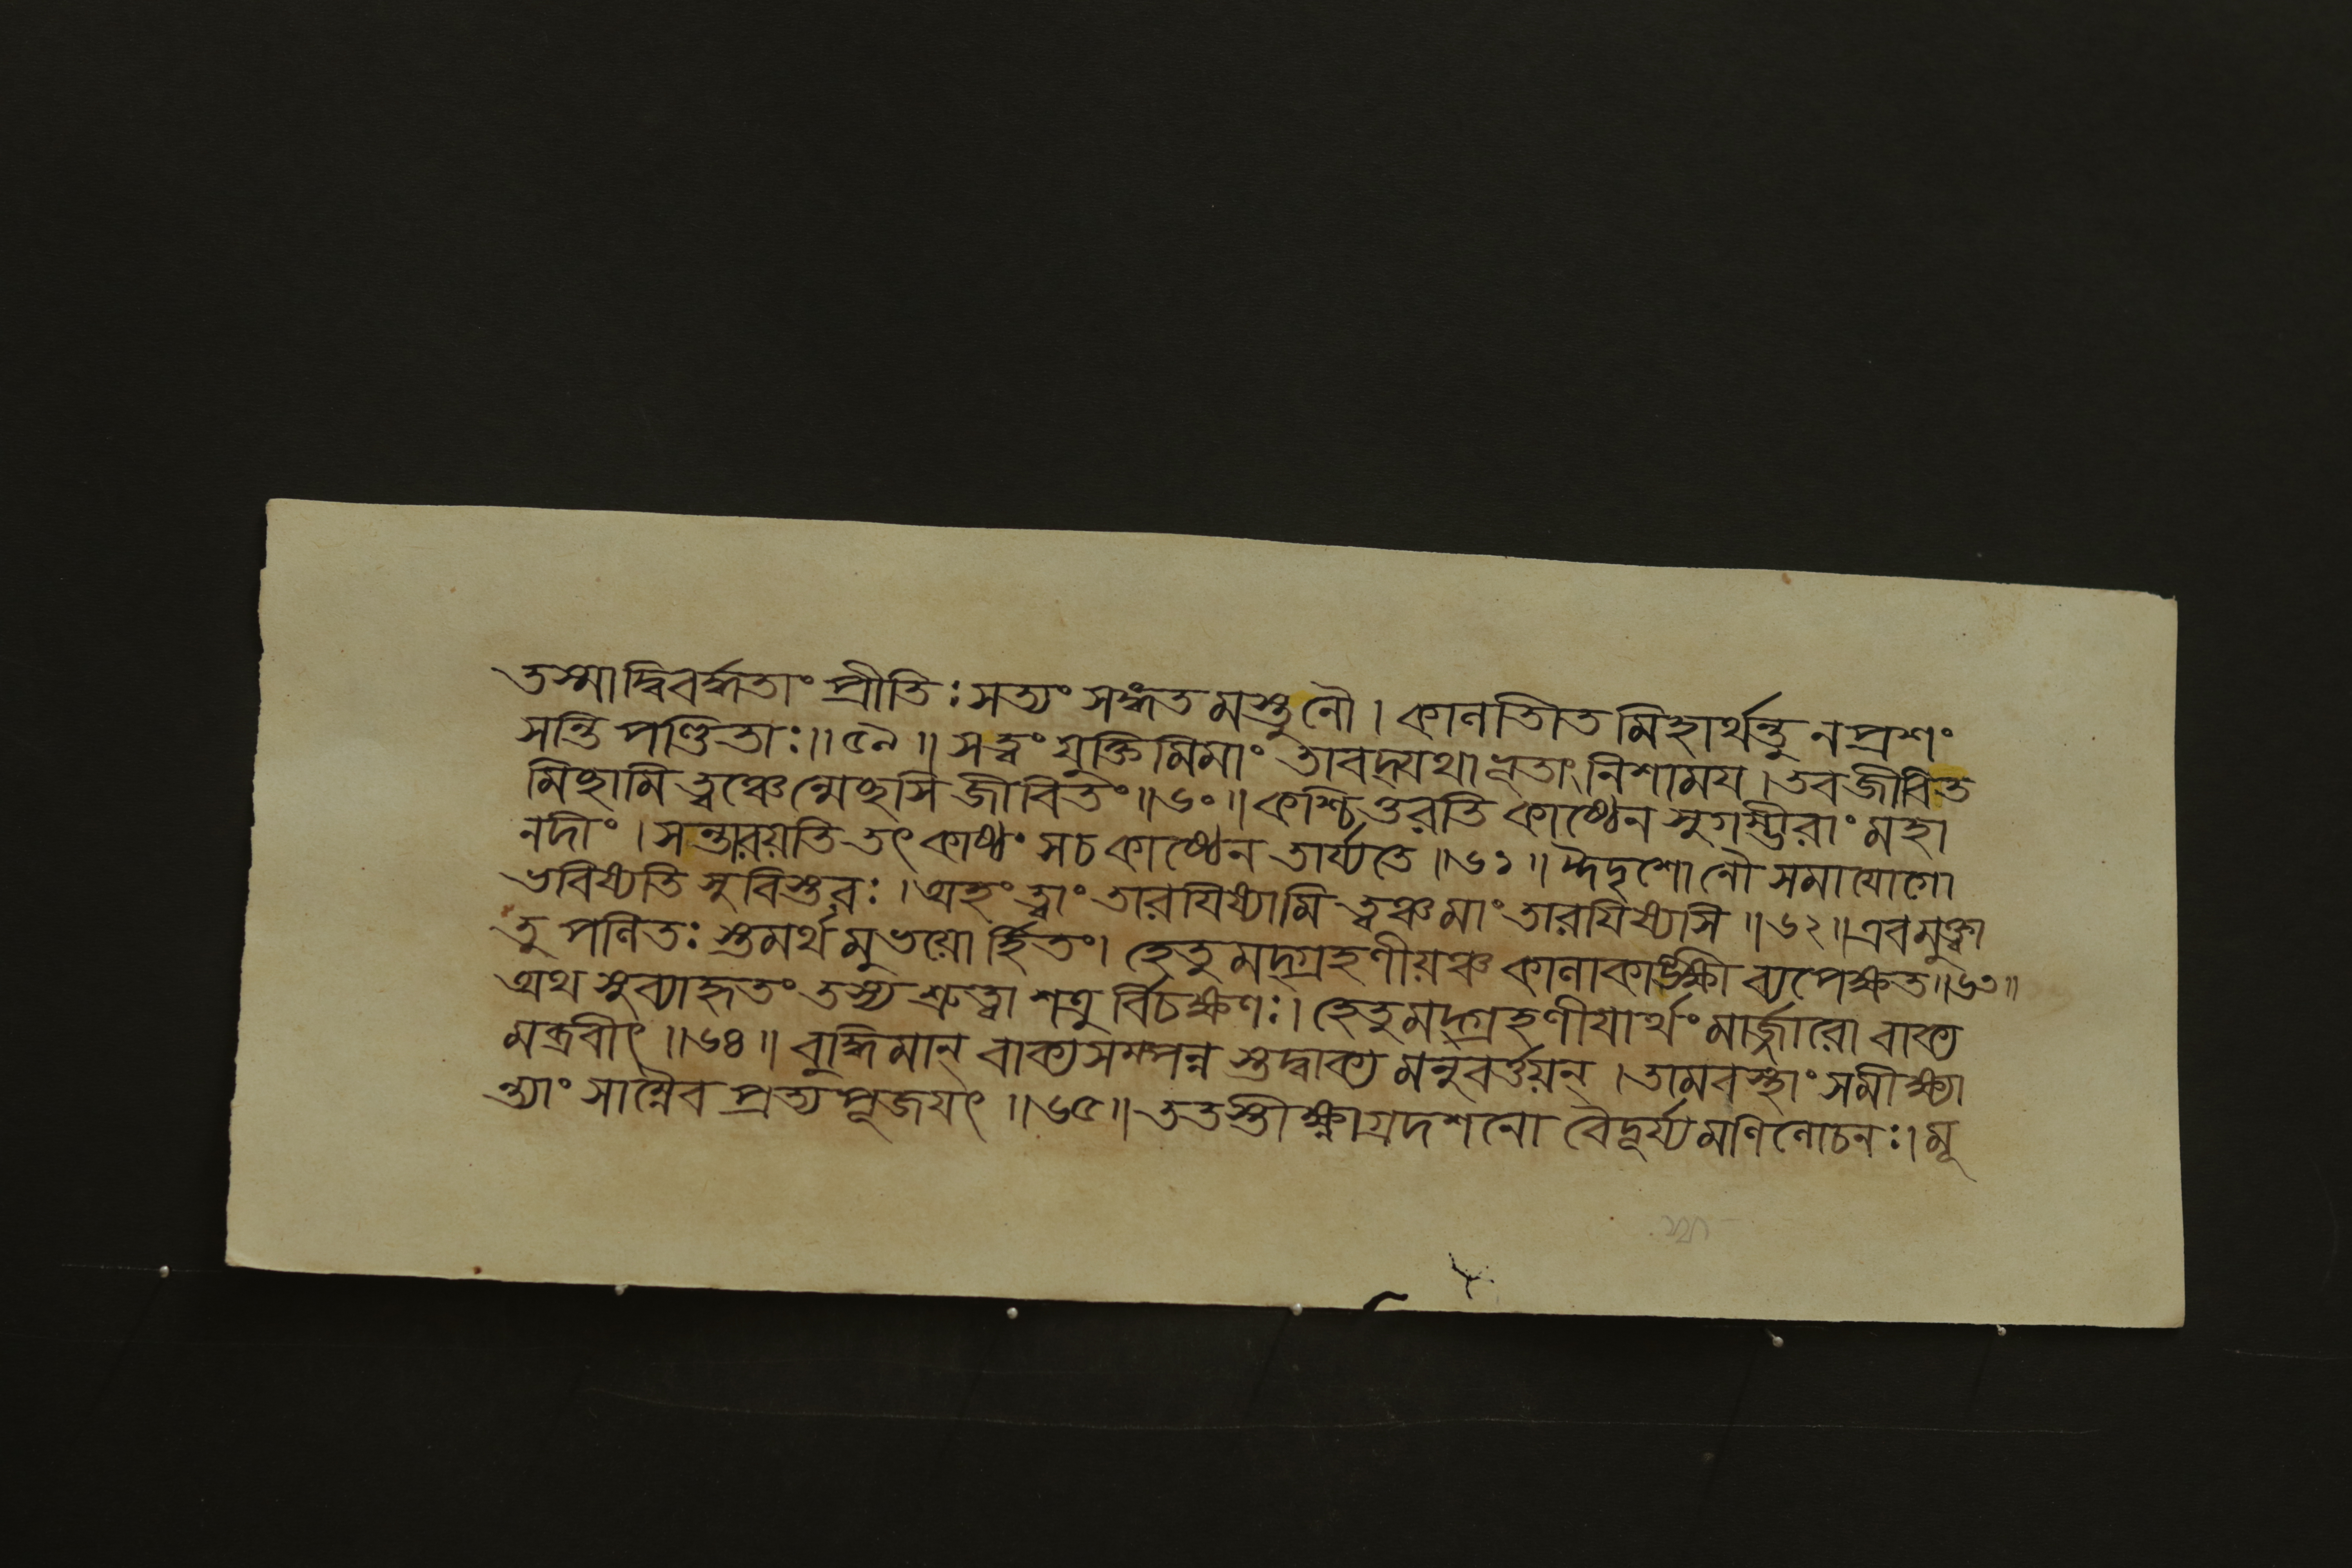 তস্মাদ্বিবর্দ্ধতাং প্রীতিঃ সত্যং সঙ্গতমস্তু নৌ । কালাতীতমিহার্থন্তু ন প্রশং
সন্তি পণ্ডিতাঃ ॥ ৫৯ ॥ সত্ত্বং যুক্তিমিমাং তাবদ্যথাভূতাং নিশাময । তব জীবিত
মিচ্ছামি ত্বঞ্চেন্মেচ্ছসি জীবিতং ॥ ৬০ ॥ কশ্চিত্তরতি কাষ্ঠেন সুগম্ভীরাং মহা
নদীং । সন্তারয়তি তৎ কাষ্ঠং স চ কাষ্ঠেন তার্য্যতে ॥ ৬১ ॥ ঈদৃশো নৌ সমাযোগো
ভবিষ্যতি সুবিস্তরঃ । অহং ত্বাং তারযিষ্যামি ত্বঞ্চ মাং তারযিষ্যসি ॥ ৬২ ॥ এবমুক্ত্বা
তু পলিতঃ স্তমর্থমুভয়োর্হিতং । হেতুমদ্গ্রহণীয়ঞ্চ কালাকাঙ্ক্ষী ব্যপেক্ষত ॥ ৬৩ ॥
অথ সুব্যাহৃতং তস্য শ্রুত্বা শত্রুর্বিচক্ষণঃ । হেতুমদ্গ্রহণীযার্থং মার্জ্জারো বাক্য
মব্রবীৎ ॥ ৬৪ ॥ বুদ্ধিমান্ বাক্যসম্পন্ন স্তদ্বাক্যমনুবর্ত্তয়ন্ । তামবস্থাং সমীক্ষ্যা
ন্ত্যাং সাম্নৈব প্রত্যপূজযৎ ॥ ৬৫ ॥ ততস্তীক্ষ্ণাগ্রদশনো বৈদূর্য্যমণিলোচনঃ । মূ